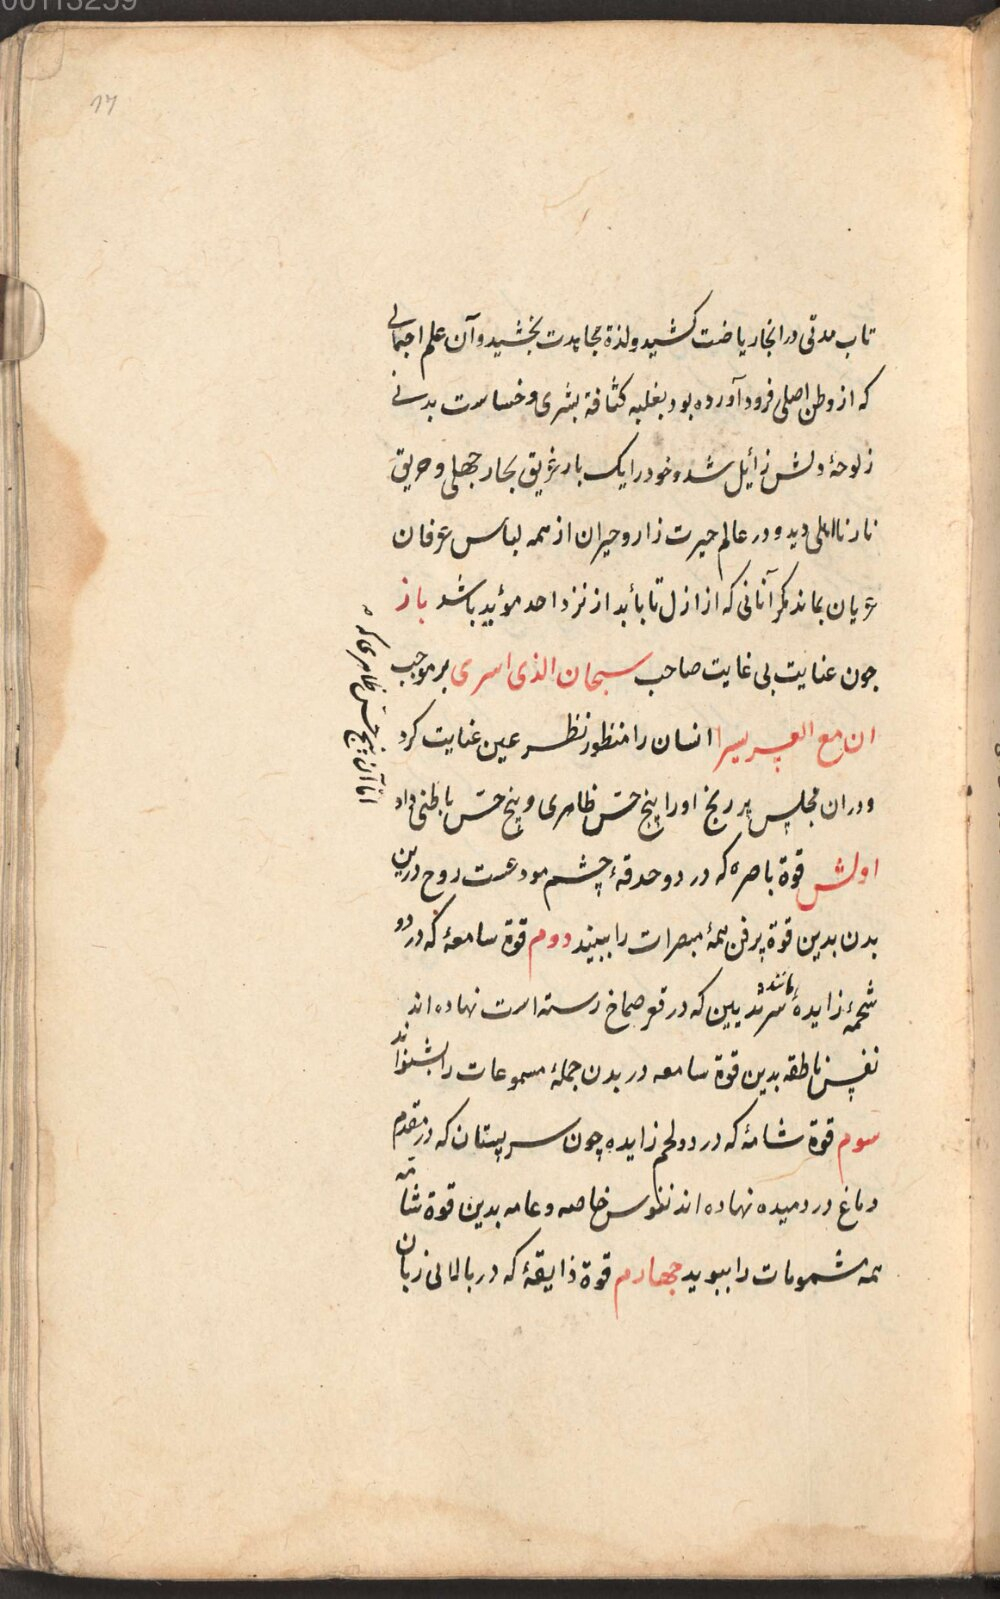 00113259
17
تاب مدتی در انجا ریاضت کشید ولذة مجاهدت بخشید وآن علم اجمالی
که از وطن اصلی فرود آورده بود بغلبه کثافة بشری وخساست بدنے
ز لوحهٔ دلش زائیل شد وخود را یک بار غریق بحار جهلی وحریق
نار نااهلی دید ودر عالم حیرت زار وحیران از همه لباس عرفان
عریان بماند مکر آنانی که از ازل تا بأبد از نزد احد مؤید باشد باز
جون عنایت بی غایت صاحب سبحان الذی اسری بر موجب
ان مع العسر یسرا انسان را منظور نظر عین عنایت کرد
ودران مجلس پر رنج اورا پنج حسّ ظاهری وپنج حسّ باطنی داد
اولش قوة باصره که در دو حدقهٔ چشم مودعست روح درین
بدن بدین قوة پر فن همهٔ مبصرات را ببیند دوم قوة سامعهٔ که در دو
شحمهٔ زایدهٔ مانند سر ثدیین که در قعر صماخ رسته است نهاده اند
نفس ناطقه بدین قوة سامعه در بدن جملهٔ مسموعات را بشنواند
سوم قوة شامهٔ که در دو لحم زایده چون سر پستان که در مقدم
دماغ در دمیده نهاده اند نفوس خاصه وعامه بدین قوة شامّه
همه مشمومات را ببوید جهارم قوة ذایقهٔ که در بالای زبان
اما آن پنج حسّ ظاهری که